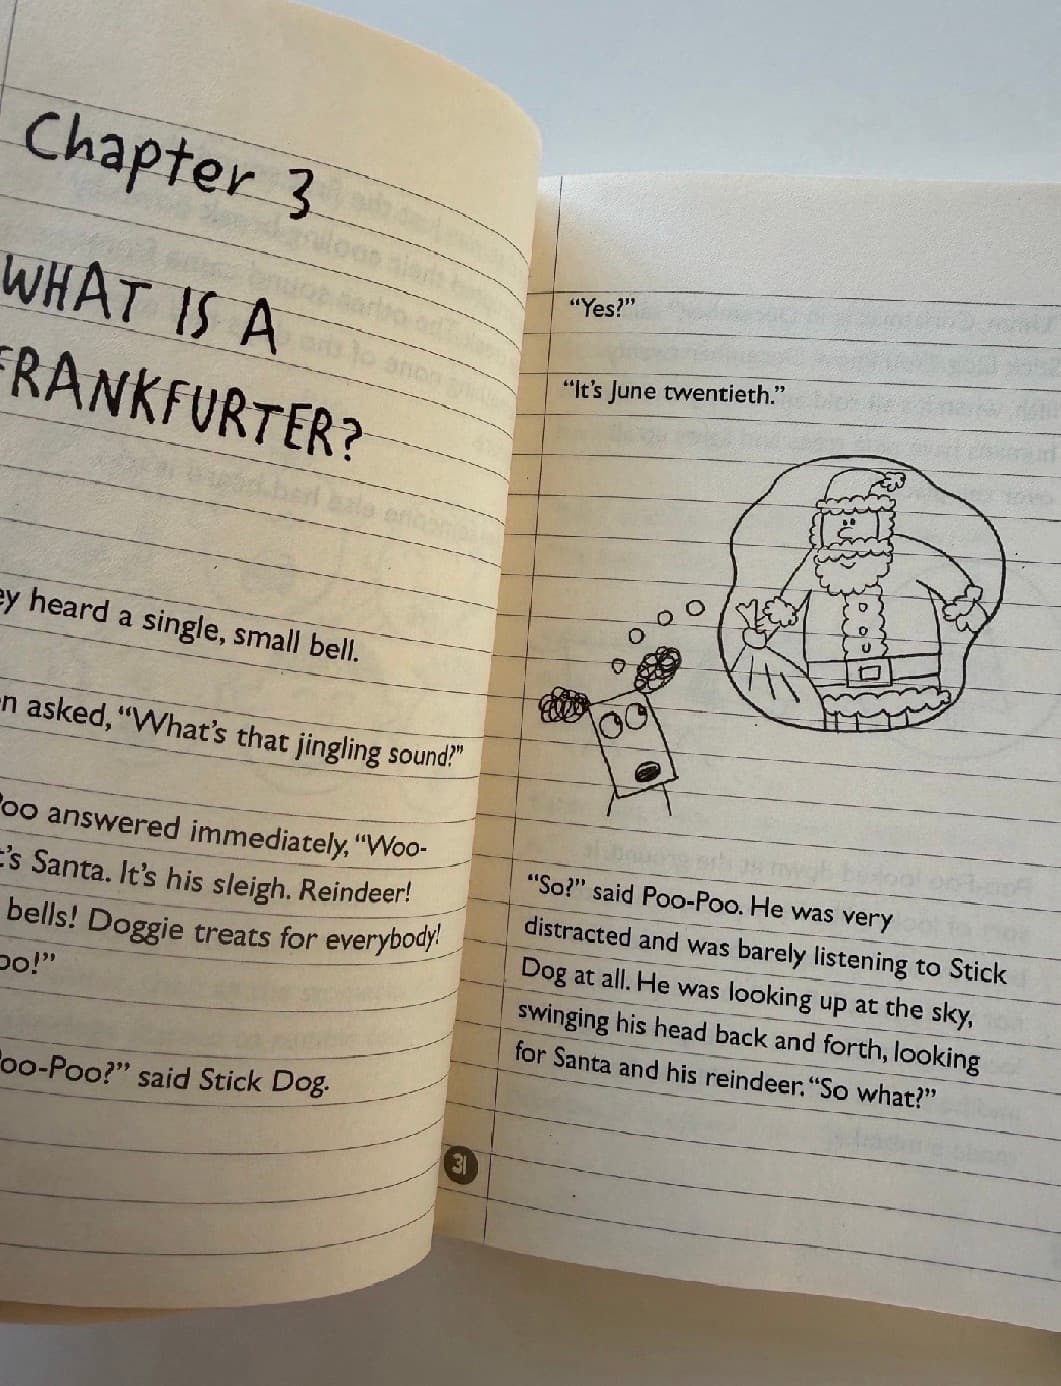 Chapter 3
WHAT IS A
FRANKFURTER?
ey heard a single, small bell.
n asked, “What’s that jingling sound?”
oo answered immediately, “Woo-
’s Santa. It’s his sleigh. Reindeer!
bells! Doggie treats for everybody!
oo!”
oo-Poo?” said Stick Dog.
31
“Yes?”
“It’s June twentieth.”
“So?” said Poo-Poo. He was very
distracted and was barely listening to Stick
Dog at all. He was looking up at the sky,
swinging his head back and forth, looking
for Santa and his reindeer. “So what?”